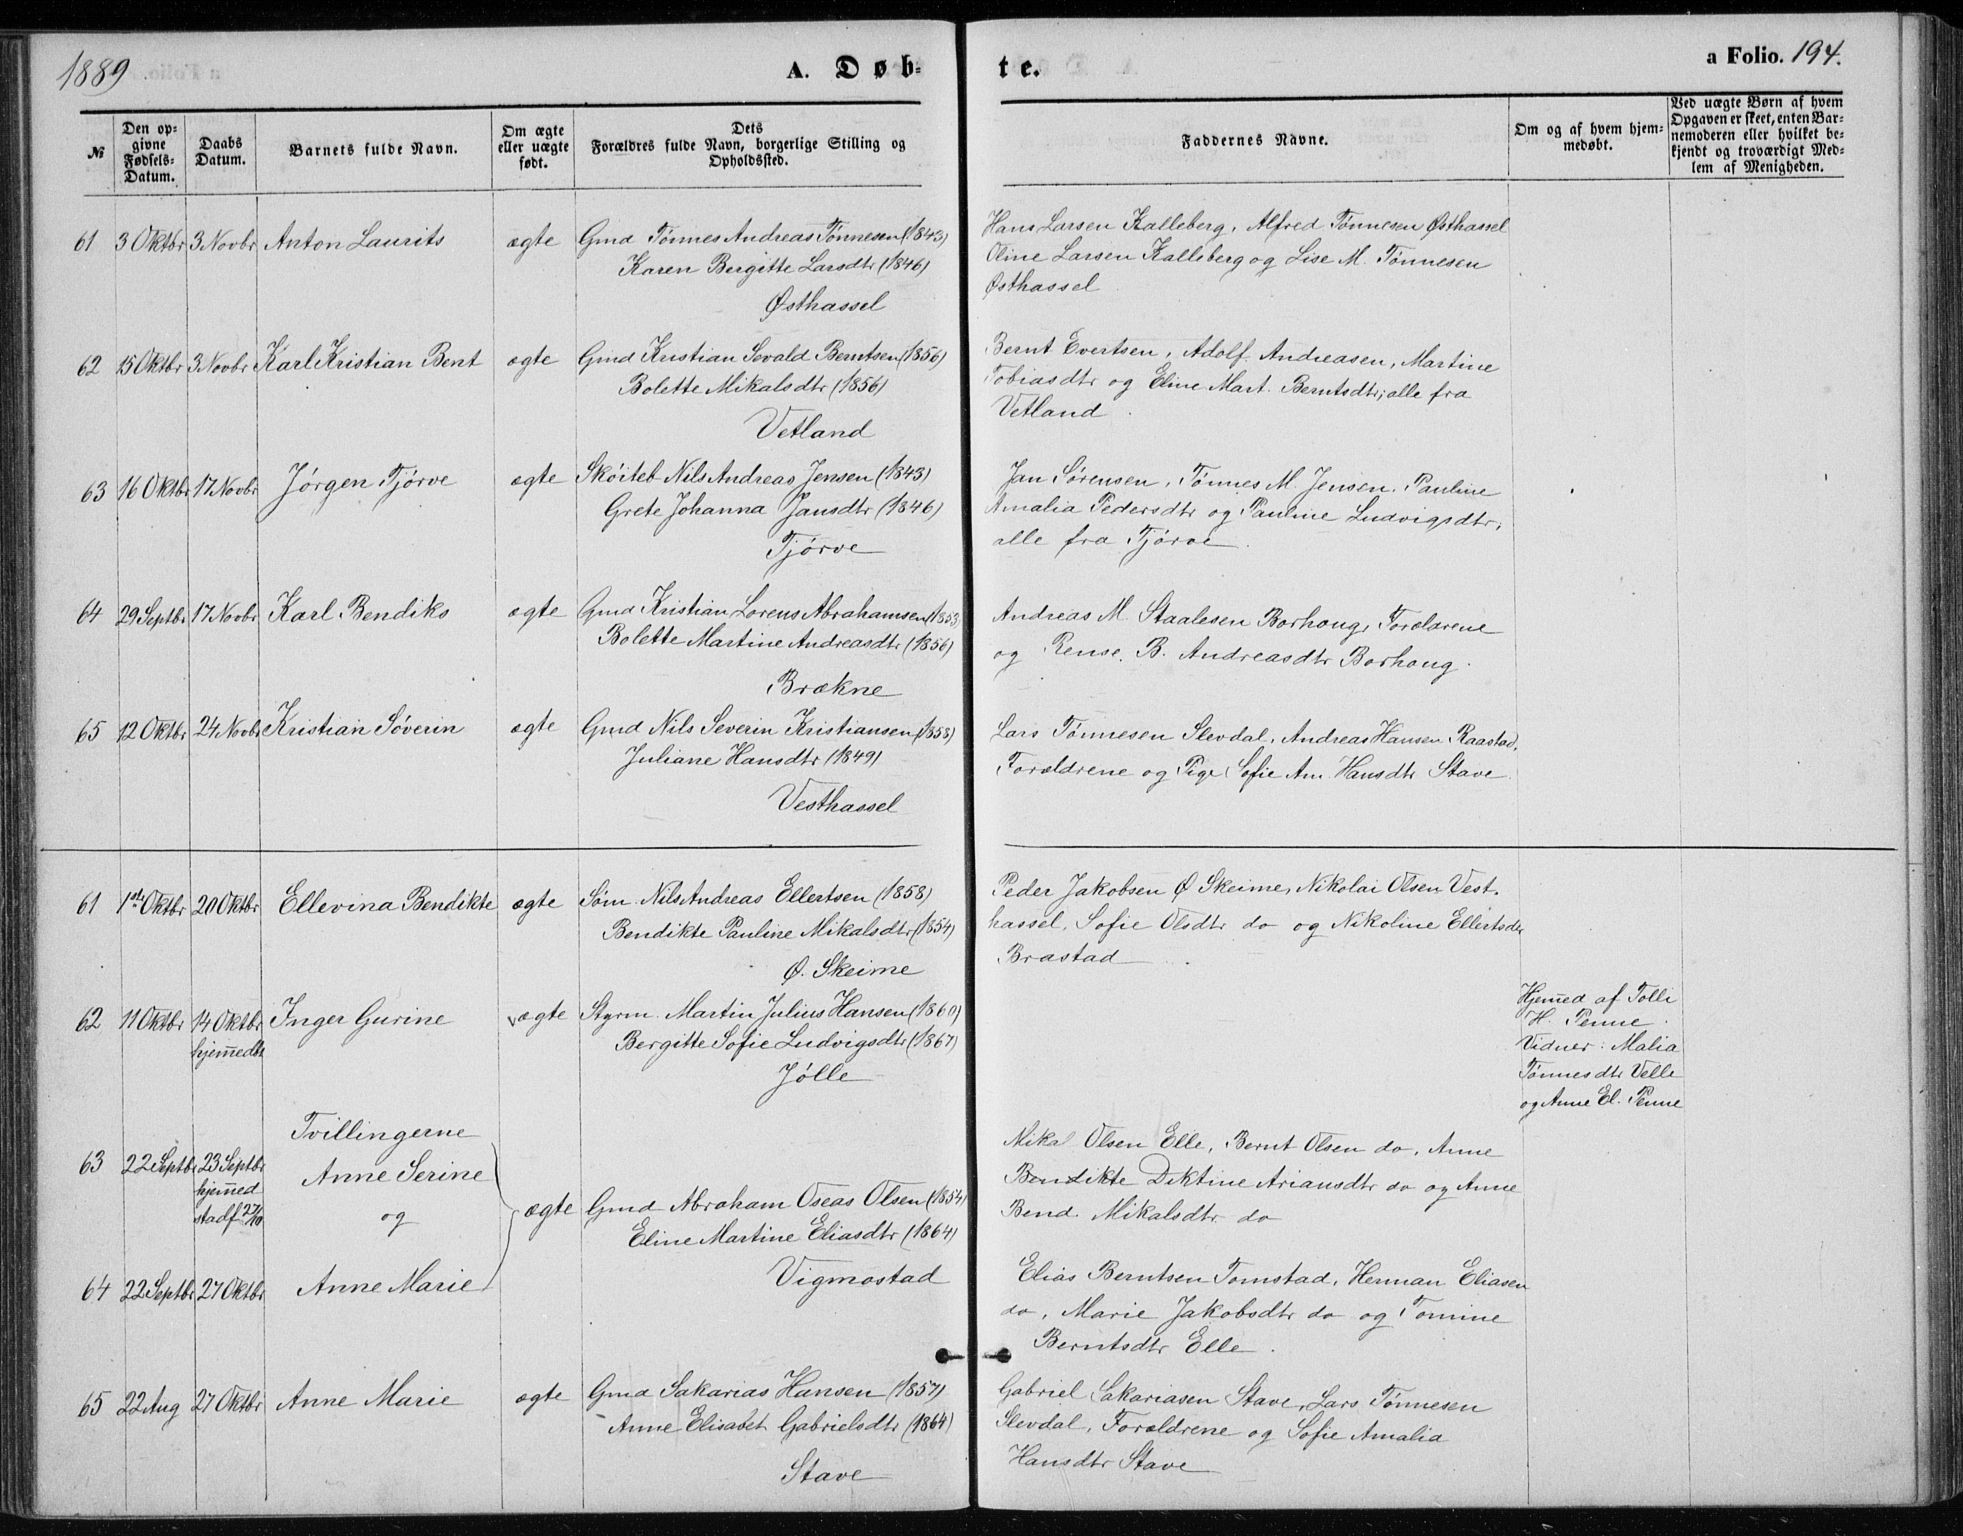 1889
A. Døb-
te.
a Folio. 194.
№
Den op-
givne
Fødsels-
Datum.
Daabs
Datum.
Barnets fulde Navn.
Om ægte
eller uægte
født.
Dets
Forældres fulde Navn, borgerlige Stilling og
Opholdsted.
Faddernes Navne.
Om og af hvem hjem-
medøbt.
Ved uægte Børn af hvem
Opgaven er skeet, enten Bar-
nemoderen eller hvilket be-
kjendt og troværdigt Med-
lem af Menigheden.
61 3 Oktbr 3 Novbr Anton Laurits ægte Gmd Tønnes Andreas Tønnesen (1843)
Karen Bergitte Larsdtr (1846)
Østhassel
Hans Larsen Kalleberg, Alfred Tønnesen Østhassel
Oline Larsen Kalleberg og Lise M. Tønnesen
Østhassel
62 15 Oktbr 3 Novbr Karl Kristian Bent ægte Gmd Kristian Sevald Berntsen (1856)
Bolette Mikalsdtr (1856)
Vetland
Bernt Evertsen, Adolf Andreasen, Martine
Tobiasdtr og Eline Mart. Berntsdtr; alle fra
Vetland
63 16 Oktbr 17 Novbr Jørgen Tjørve ægte Skøiteb Nils Andreas Jensen (1843)
Grete Johanna Jansdtr (1846)
Tjørve
Jan Sørensen, Tønnes M. Jensen, Pauline
Amalia Pedersdtr og Pauline Ludvigsdtr,
alle fra Tjørve.
64 29 Septbr 17 Novbr Karl Bendiks ægte Gmd Kristian Lorens Abrahamsen (1853
Bolette Martine Andreasdtr (1856)
Brækne
Andreas M. Staalesen Borhoug, Forælarene
og Rense. B. Andreasdtr Borhoug.
65 12 Oktbr 24 Novbr Kristian Søverin ægte Gmd Nils Severin Kristiansen (1858)
Juliane Hansdtr (1849)
Vesthassel
Lars Tønnesen Slevdal, Andreas Hansen Raastad,
Forældrene og Pige Sofie Am. Hansdtr Stave
61 1ste Oktbr 20 Oktbr Ellevina Bendikte ægte Søm. Nils Andreas Ellertsen (1858)
Bendikte Pauline Mikalsdtr (1854)
Ø. Skeime
Peder Jakobsen Ø Skeime, Nikolai Olsen Vest.
hassel, Sofie Olsdtr do og Nikoline Ellertsdr
Brastad
62 11 Oktbr 14 Oktbr Inger Gurine ægte Styrm. Martin Julius Hansen (1860)
hjemedbt Bergitte Sofie Ludvigsdtr (1867)
Jølle
Hjemed af Tolli
H. Penne.
Vidner: Malia
Tønnesdtr Velle
og Anne El. Penne
Tvillingerne
63 22 Septbr 23 Septbr Anne Serine
hjemed
stadf 27/10
og
ægte Gmd Abraham Oseas Olsen (1854)
Eline Martine Eliasdtr (1864)
Vigmostad
Mikal Olsen Elle, Bernt Olsen do, Anne
Bendikte Diktine Ariansdtr do og Anne
Bend. Mikalsdtr do
64 22 Septbr 27 Oktbr Anne Marie
Elias Berntsen Tomstad, Herman Eliasen
do, Marie Jakobsdtr do og Tomine
Berntsdtr Elle.
65 22 Aug 27 Oktbr Anne Marie ægte Gmd Sakarias Hansen (1857)
Anne Elisabet Gabrielsdtr (1864)
Stave
Gabriel Sakariasen Stave, Lars Tønnesen
Slevdal, Forældrene og Sofie Amalia
Hansdtr Stave